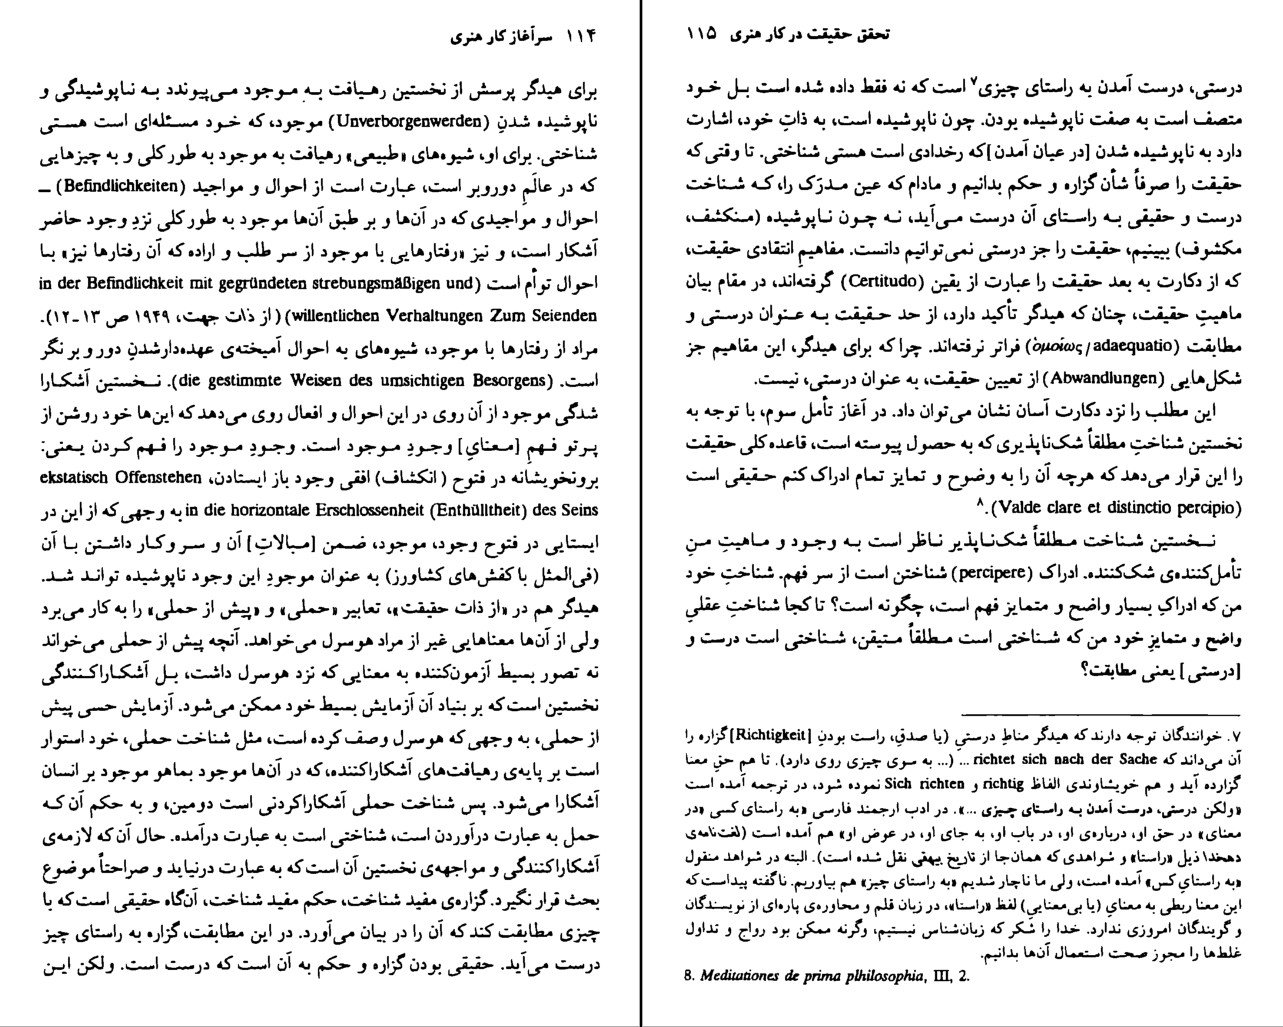 ۱۱۴ سرآغاز کار هنری
برای هیدگر پرسش از نخستین رهیافت به موجود می‌پیوندد به ناپوشیدگی و
ناپوشیده شدنِ (Unverborgenwerden) موجود، که خود مسئله‌ای است هستی
شناختی. برای او، شیوه‌های «طبیعی» رهیافت به موجود به طور کلی و به چیزهایی
که در عالَمِ دوروبر است، عبارت است از احوال و مواجید (Befindlichkeiten) ــ
احوال و مواجیدی که در آن‌ها و بر طبق آن‌ها موجود به طور کلی نزدِ وجود حاضر
آشکار است، و نیز «رفتارهایی با موجود از سر طلب و اراده که آن رفتارها نیز» بـا
احوال توأم است (in der Befindlichkeit mit gegründeten strebungsmäßigen und
willentlichen Verhaltungen Zum Seienden) (از ذات جهت، ۱۹۴۹ ص ۱۳-۱۲).
مراد از رفتارها با موجود، شیوه‌های به احوال آمیخته‌ی عهده‌دارشدنِ دور و بر نگر
است. (die gestimmte Weisen des umsichtigen Besorgens). نـخستین آشکـارا
شدگی موجود از آن روی در این احوال و افعال روی می‌دهد که این‌ها خود روشن از
پرتو فـهمِ [مـعنایِ] وجـودِ مـوجود است. وجـودِ مـوجود را فـهم کـردن یـعنی:
برونخویشانه در فتوح (انکشاف) افقی وجود باز ایستادن، ekstatisch Offenstehen
in die horizontale Erschlossenheit (Enthülltheit) des Seins به وجهی که از این در
ایستایی در فتوح وجود، موجود، ضمن [مبالاتِ] آن و سر وکار داشتن بـا آن
(فی‌المثل با کفش‌های کشاورز) به عنوان موجودِ این وجود ناپوشیده توانـد شـد.
هیدگر هم در «از ذات حقیقت»، تعابیر «حملی» و «پیش از حملی» را به کار می‌برد
ولی از آن‌ها معناهایی غیر از مراد هوسرل می‌خواهد. آنچه پیش از حملی می‌خواند
نه تصور بسیط آزمون‌کننده به معنایی که نزد هوسرل داشت، بـل آشکـاراکـنندگی
نخستین است که بر بنیاد آن آزمایش بسیط خود ممکن می‌شود. آزمایش حسی پیش
از حملی، به وجهی که هوسرل وصف کرده است، مثل شناخت حملی، خود استوار
است بر پایه‌ی رهیافت‌های آشکاراکننده، که در آن‌ها موجود بماهو موجود بر انسان
آشکارا می‌شود. پس شناخت حملی آشکاراکردنی است دومین، و به حکم آن کـه
حمل به عبارت درآوردن است، شناختی است به عبارت درآمده. حال آن‌که لازمه‌ی
آشکاراکنندگی و مواجهه‌ی نخستین آن است که به عبارت درنیاید و صراحتاً موضوع
بحث قرار نگیرد. گزاره‌ی مفید شناخت، حکم مفید شناخت، آن‌گاه حقیقی است که با
چیزی مطابقت کند که آن را در بیان می‌آورد. در این مطابقت، گزاره به راستای چیز
درست می‌آید. حقیقی بودن گزاره و حکم به آن است که درست است. ولکن ایـن
تحقق حقیقت در کار هنری ۱۱۵
درستی، درست آمدن به راستای چیزی۷ است که نه فقط داده شده است بـل خـود
متصف است به صفت ناپوشیده بودن. چون ناپوشیده است، به ذاتِ خود، اشارت
دارد به ناپوشیده شدن [در عیان آمدن] که رخدادی است هستی شناختی. تا وقتی که
حقیقت را صرفاً شأن گزاره و حکم بدانیم و مادام که عین مـدرَک را، کـه شـناخت
درست و حقیقی بـه راستای آن درست مـی‌آید، نـه چـون نـاپوشیده (مـنکشف،
مکشوف) ببینیم، حقیقت را جز درستی نمی‌توانیم دانست. مفاهیمِ انتقادی حقیقت،
که از دکارت به بعد حقیقت را عبارت از یقین (Certitudo) گرفته‌اند، در مقام بیان
ماهیتِ حقیقت، چنان که هیدگر تأکید دارد، از حد حـقیقت بـه عـنوان درسـتی و
مطابقت (ὁμοίως / adaequatio) فراتر نرفته‌اند. چرا که برای هیدگر، این مفاهیم جز
شکل‌هایی (Abwandlungen) از تعیین حقیقت، به عنوان درستی، نیست.
این مطلب را نزد دکارت آسان نشان می‌توان داد. در آغاز تأمل سوم، با توجه به
نخستین شناختِ مطلقاً شک‌ناپذیری که به حصول پیوسته است، قاعده کلی حقیقت
را این قرار می‌دهد که هرچه آن را به وضوح و تمایز تمام ادراک کنم حقیقی است
(Valde clare et distinctio percipio).۸
نـخستین شناخت مـطلقاً شک‌نـاپذیر نـاظر است بـه وجـود و مـاهیتِ مـنِ
تأمل‌کننده‌ی شک‌کننده. ادراک (percipere) شناختن است از سر فهم. شناختِ خود
من که ادراکِ بسیار واضح و متمایز فهم است، چگونه است؟ تا کجا شناختِ عقلیِ
واضح و متمایزِ خود من که شـناختی است مـطلقاً مـتیقن، شـناختی است درست و
[درستی] یعنی مطابقت؟
۷. خوانندگان توجه دارند که هیدگر مناطِ درستیِ (یا صدقِ، راست بودنِ [Richtigkeit]) گزاره را
آن می‌داند که richtet sich nach der Sache ... (... به سوی چیزی روی دارد). تا هم حقِ معنا
گزارده آید و هم خویشاوندی الفاظ richtig و Sich richten نموده شود، در ترجمه آمده است
«ولکن درستی، درست آمدن بـه راستای چیزی ...». در ادب ارجمند فارسی «به راستای کسی «در
معنای» در حق او، درباره‌ی او، در باب او، به جای او، در عوض او» هم آمده است (لغت‌نامه‌ی
دهخدا ذیل «راستا» و شواهدی که همان‌جا از تاریخ بیهقی نقل شده است). البته در شواهد منقول
«به راستایِ کس» آمده است، ولی ما ناچار شدیم «به راستای چیز» هم بیاوریم. ناگفته پیداست که
این معنا ربطی به معنایِ (یا بی‌معنایی) لفظ «راستا»، در زبان قلم و محاوره‌ی پاره‌ای از نویسندگان
و گویندگان امروزی ندارد. خدا را شکر که زبان‌شناس نیستیم، وگرنه ممکن بود رواج و تداول
غلط‌ها را مجوز صحت استعمال آن‌ها بدانیم.
8. Meditationes de prima plhilosophia, III, 2.